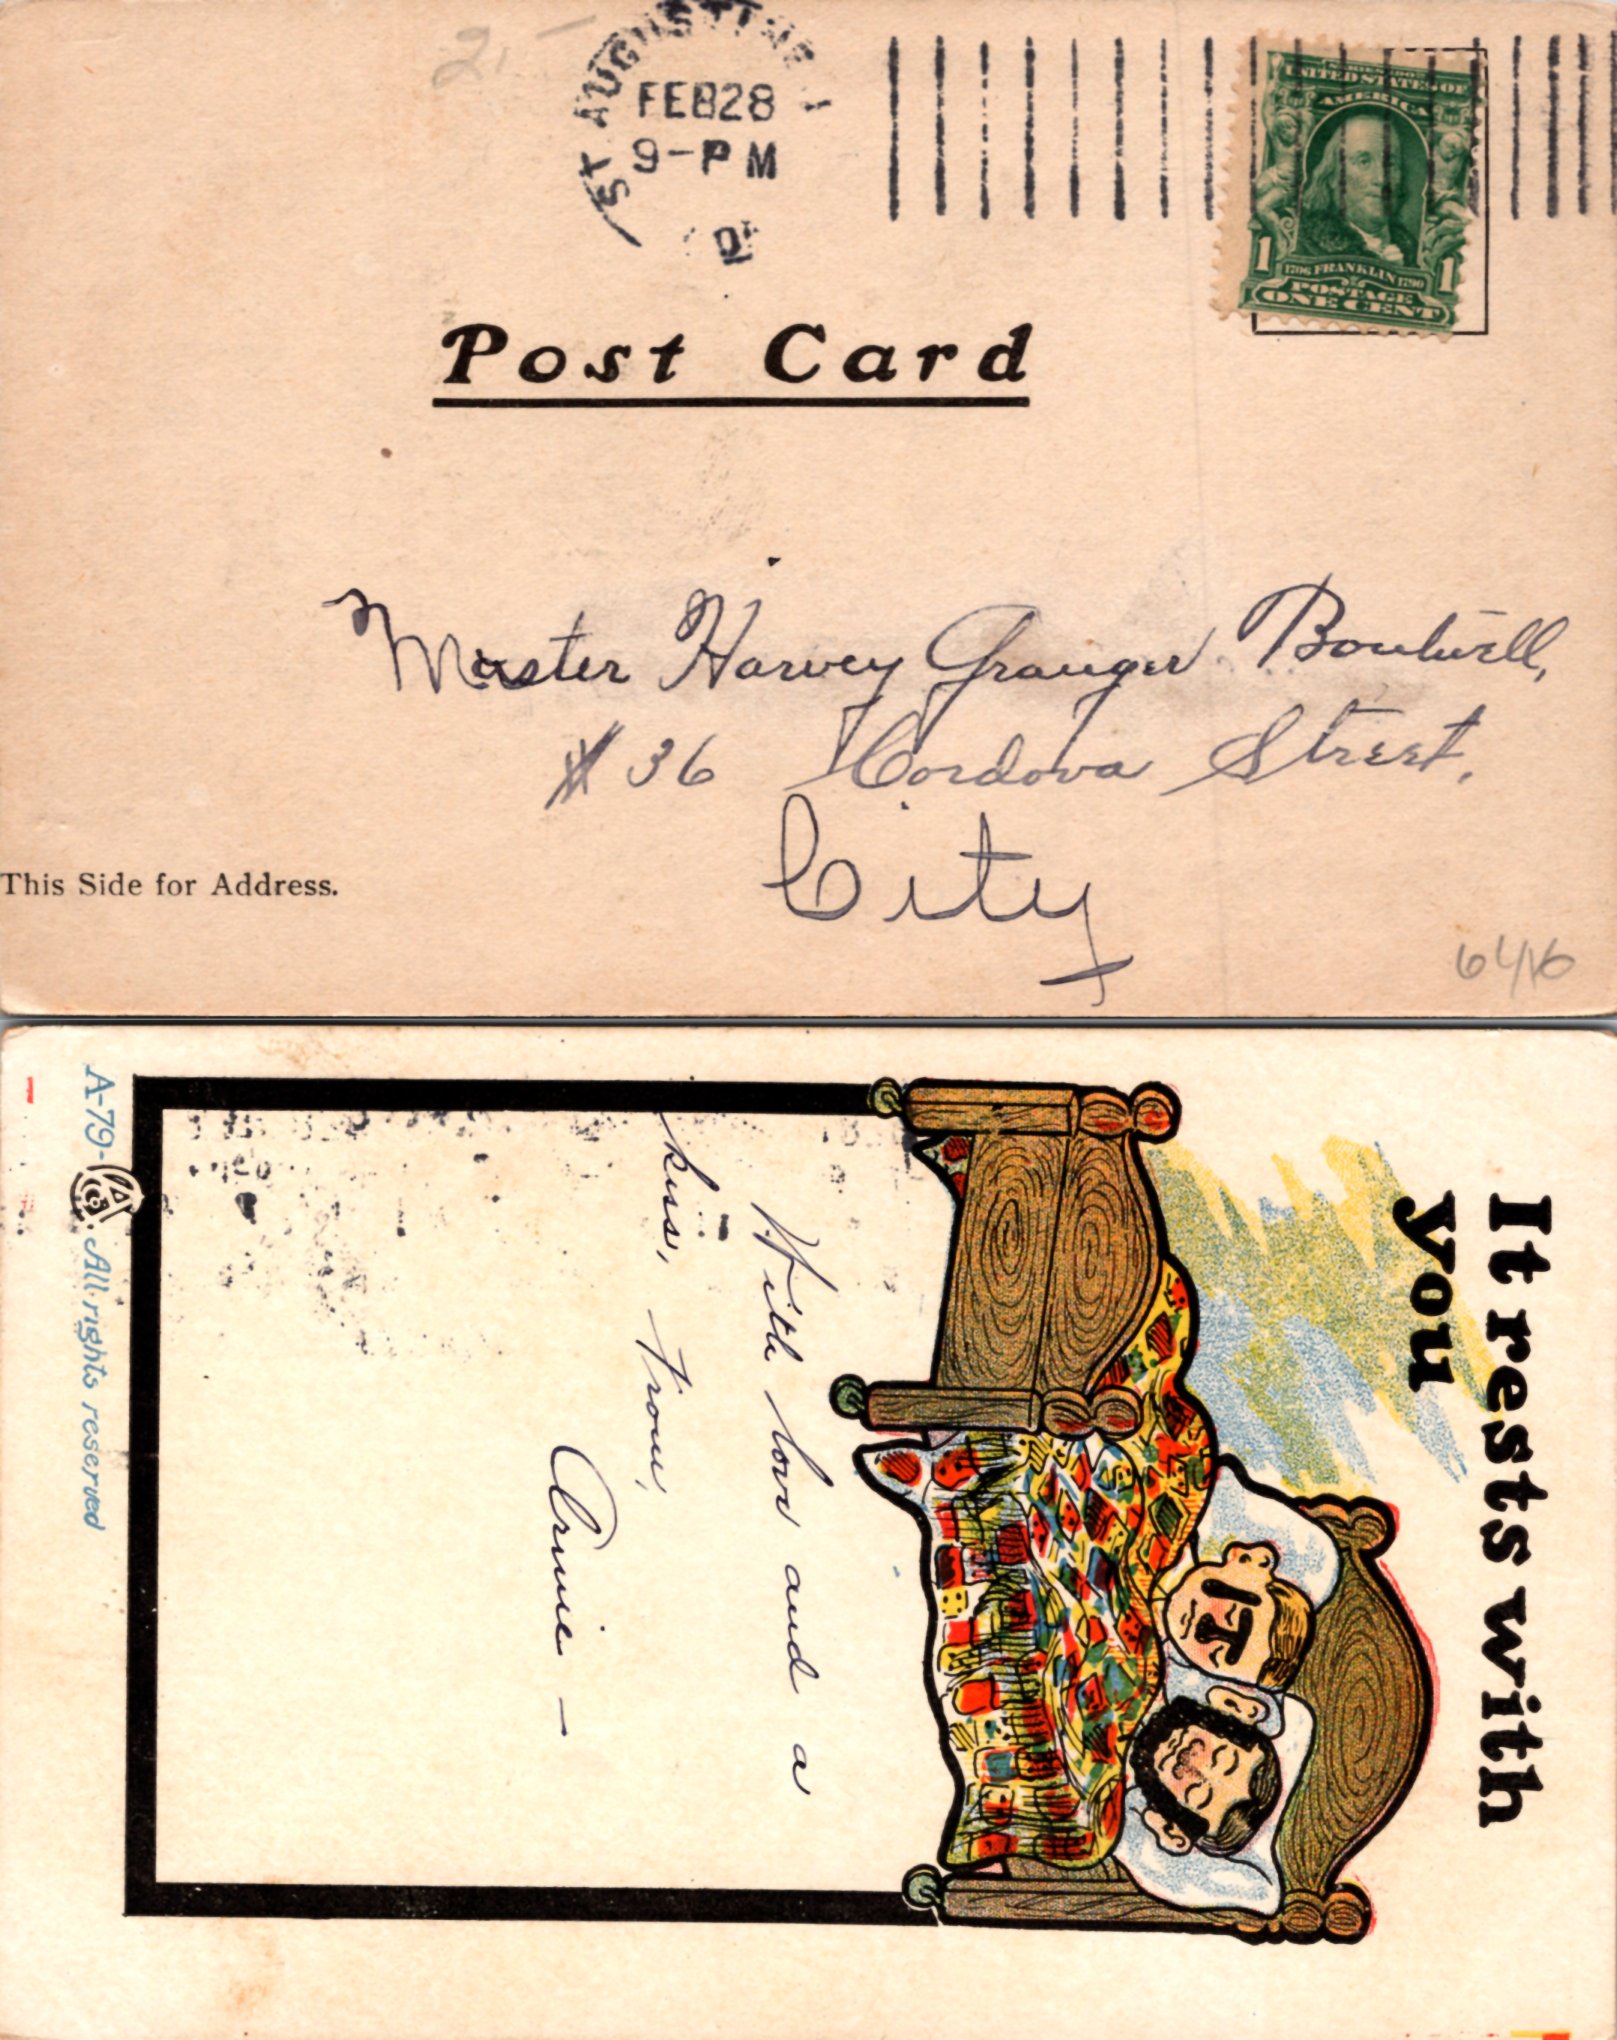 2.-
ST AUGUSTINE
FEB 28
9-PM
SERIES 1902
UNITED STATES OF
AMERICA
1 1706 FRANKLIN 1790 1
POSTAGE
ONE CENT
Post Card
Master Harvey Granger Boutwell,
# 36 Cordova Street.
City
This Side for Address.
It rests with
you
With love and a
kiss, from,
Annie —
A-79- All rights reserved